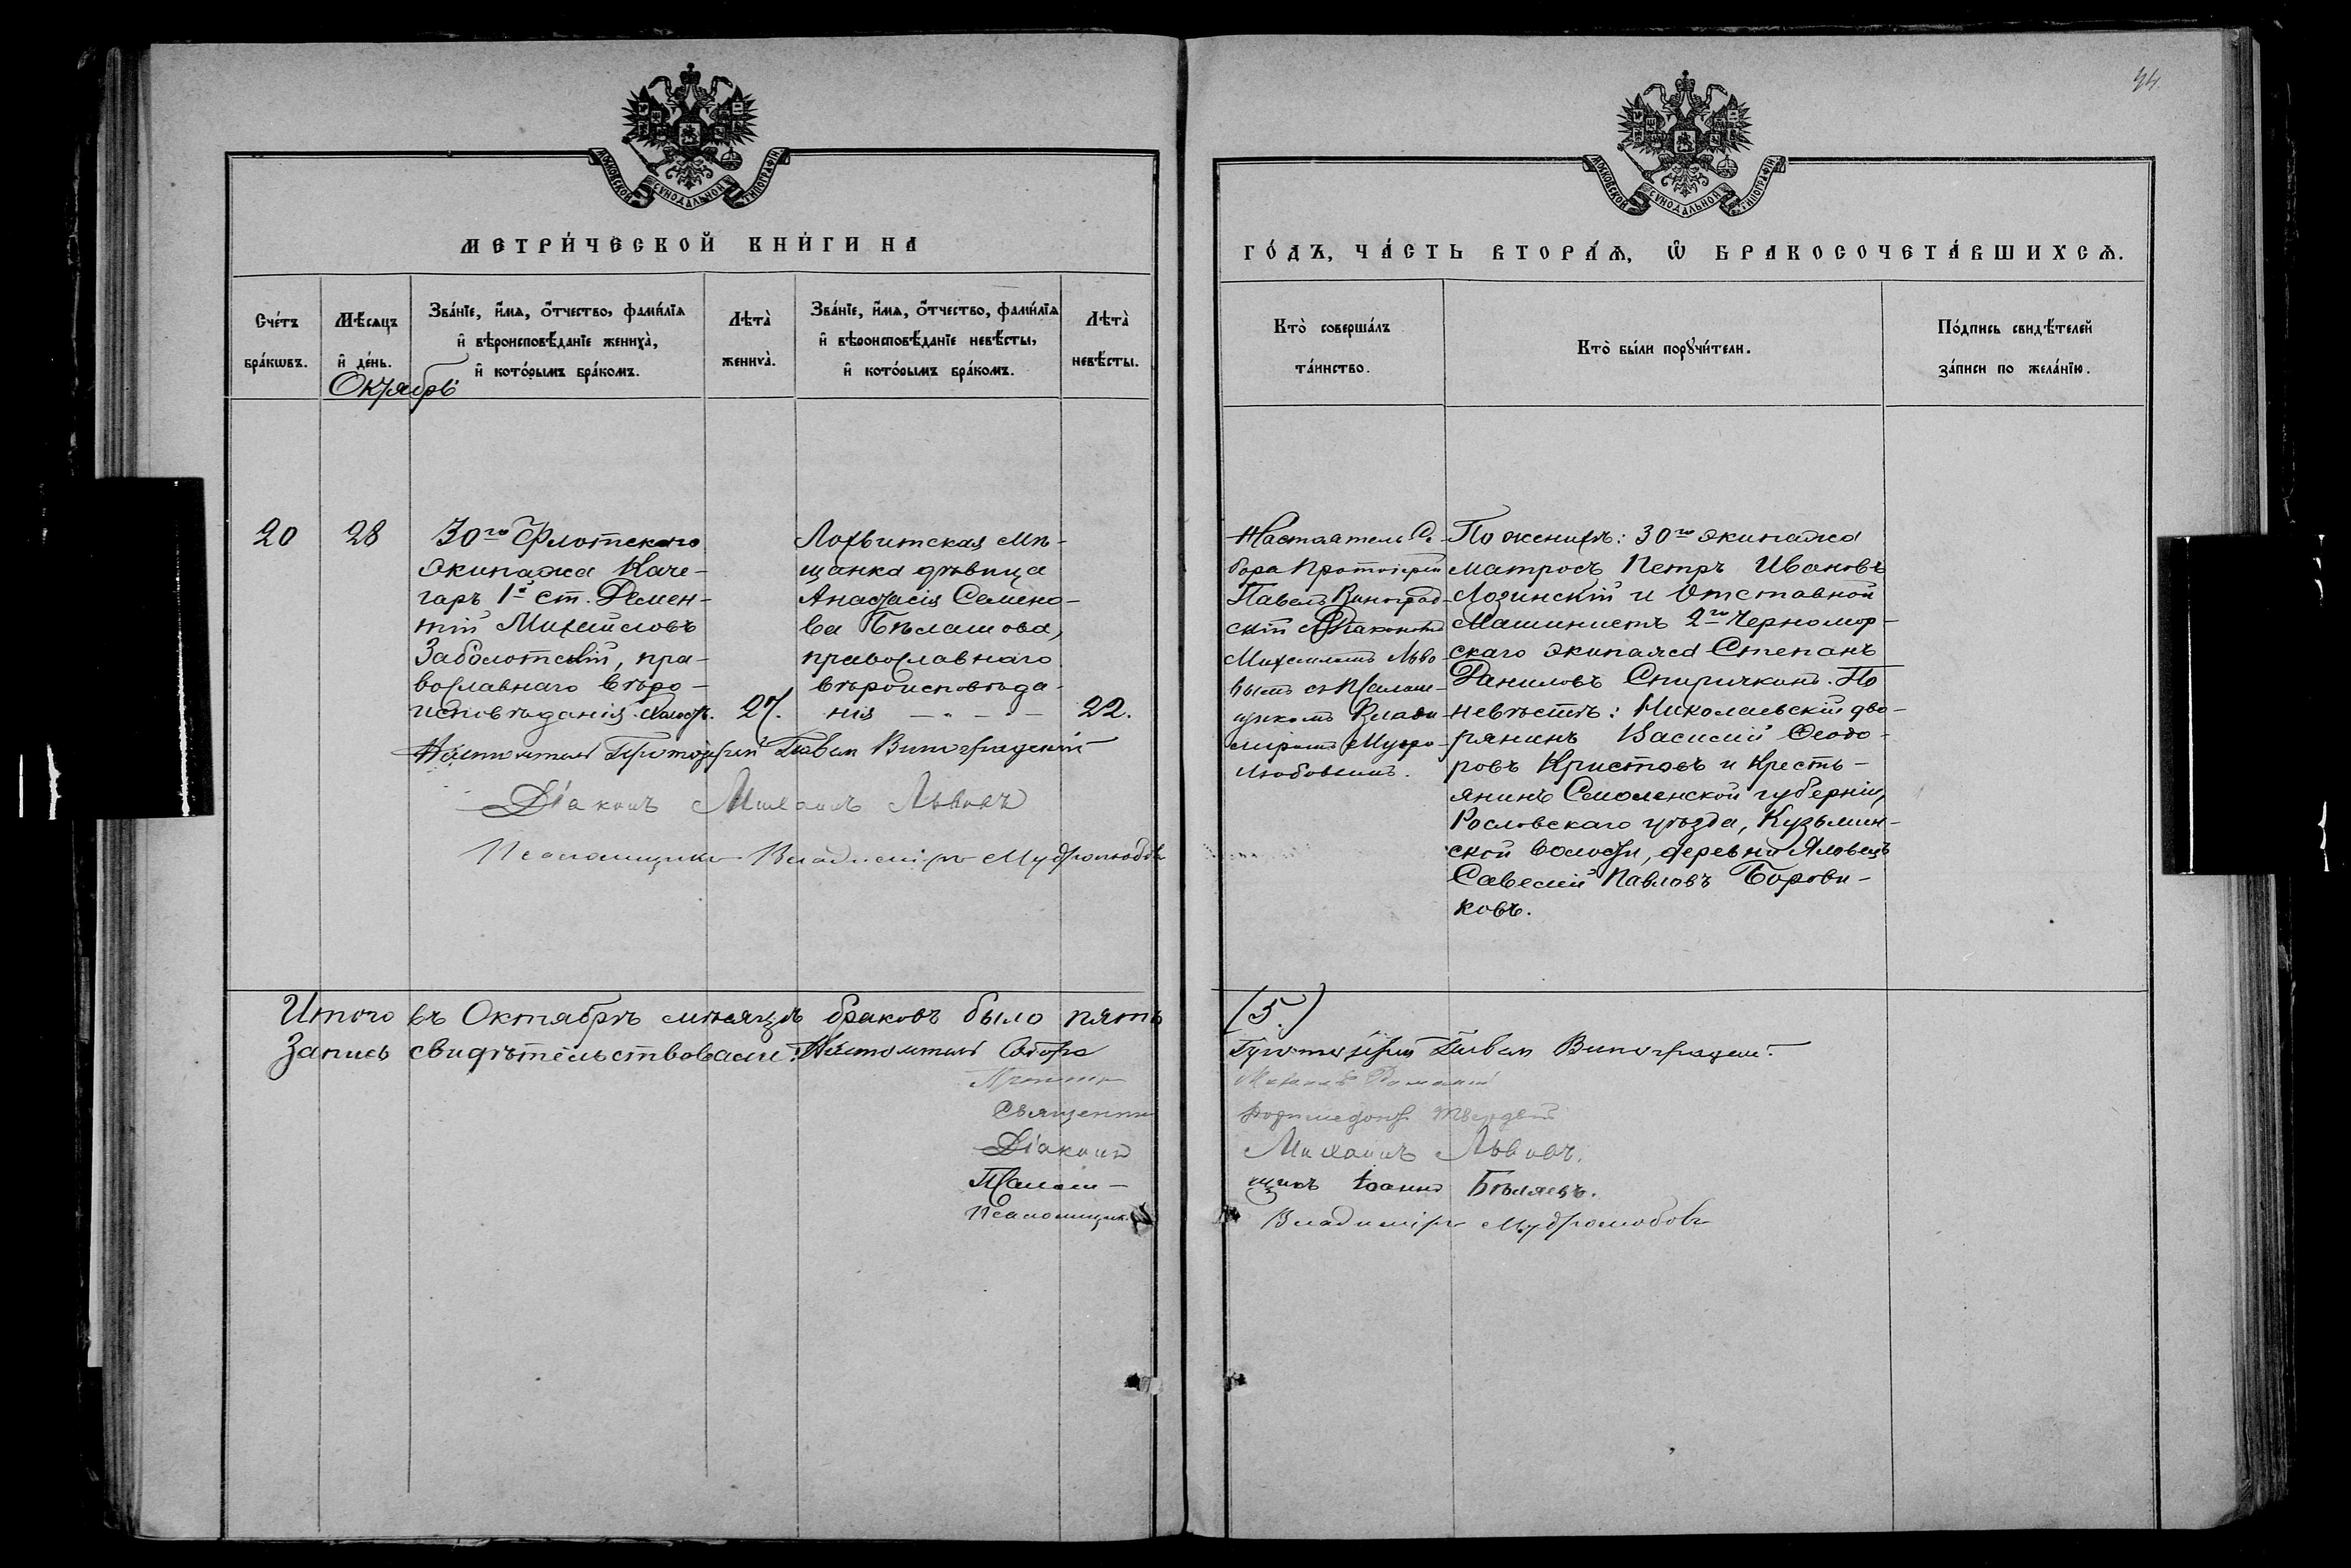 94.
МОСКОВСКОЙ СУНОДАЛЬНОЙ ТИПОГРАФІИ
МЕТРИ́ЧЕСКОЙ КНИ́ГИ НА
Сче́тъ бра́кѡвъ.
Мѣ́сяцъ и҆ де́нь.
Октябрь
Зва́нїе, и҆́мѧ, ѻ҆́тчество, фами́лїѧ
и҆ вѣроисповѣ́данїе жениха̀,
и҆ кото́рымъ бра́комъ.
Лѣта̀ жениха̀.
Зва́нїе, и҆́мѧ, ѻ҆́тчество, фами́лїѧ
и҆ вѣроисповѣ́данїе невѣ́сты,
и҆ кото́рымъ бра́комъ.
Лѣта̀ невѣ́сты.
20
28
30го Флотскаго
экипажа Коче-
гаръ 1й ст. Демен-
тій Михайловъ
Заболотскій, пра-
вославнаго вѣро-
исповѣданія. холостъ.
27.
Лохвитская мѣ-
щанка дѣвица
Анастасія Семено-
ва Бѣлашова,
православнаго
вѣроисповѣда-
нія
22.
Настоятель Протоіерей Павелъ Виноградскій
Діаконъ Михаилъ Львовъ
Псаломщикъ Владиміръ Мудролюбовъ
Итого въ Октябрѣ мѣсяцѣ браковъ было пять
Запись свидѣтельствовали: Настоятель Собора
Священникъ
Діаконъ
Псалом-
Псаломщикъ
МОСКОВСКОЙ СУНОДАЛЬНОЙ ТИПОГРАФІИ
ГО́ДЪ, ЧА́СТЬ ВТОРА́Ѧ, Ѡ҆ БРАКОСОЧЕТА́ВШИХСѦ.
Кто̀ соверша́лъ
та́инство.
Кто̀ бы́ли порꙋчи́тели.
По́дпись свидѣ́телей
за́писи по жела́нїю.
Настоятель Со-
бора Протоіерей
Павелъ Виноград-
скій съ Діакономъ
Михаиломъ Льво-
вымъ и Псалом-
щикомъ Влади-
міромъ Мудро-
любовымъ.
По женихѣ: 30го экипажа
матросъ Петръ Ивановъ
Лозинскій и Отставной
Машинистъ 2го Черномор-
скаго экипажа Степанъ
Даниловъ Спиричкинъ. По
невѣстѣ: Николаевскій дво-
рянинъ Василій Ѳеодо-
ровъ Кристовъ и Кресть-
янинъ Смоленской губерніи,
Рословскаго уѣзда, Кузьмин-
ской волости, деревни Яловецъ
Савелий Павловъ Борови-
ковъ.
(5.)
Протоіерей Павелъ Виноградскій.
Михаилъ
Михаилъ Львовъ.
щикъ Іоаннъ Бѣляевъ.
Владиміръ Мудролюбовъ